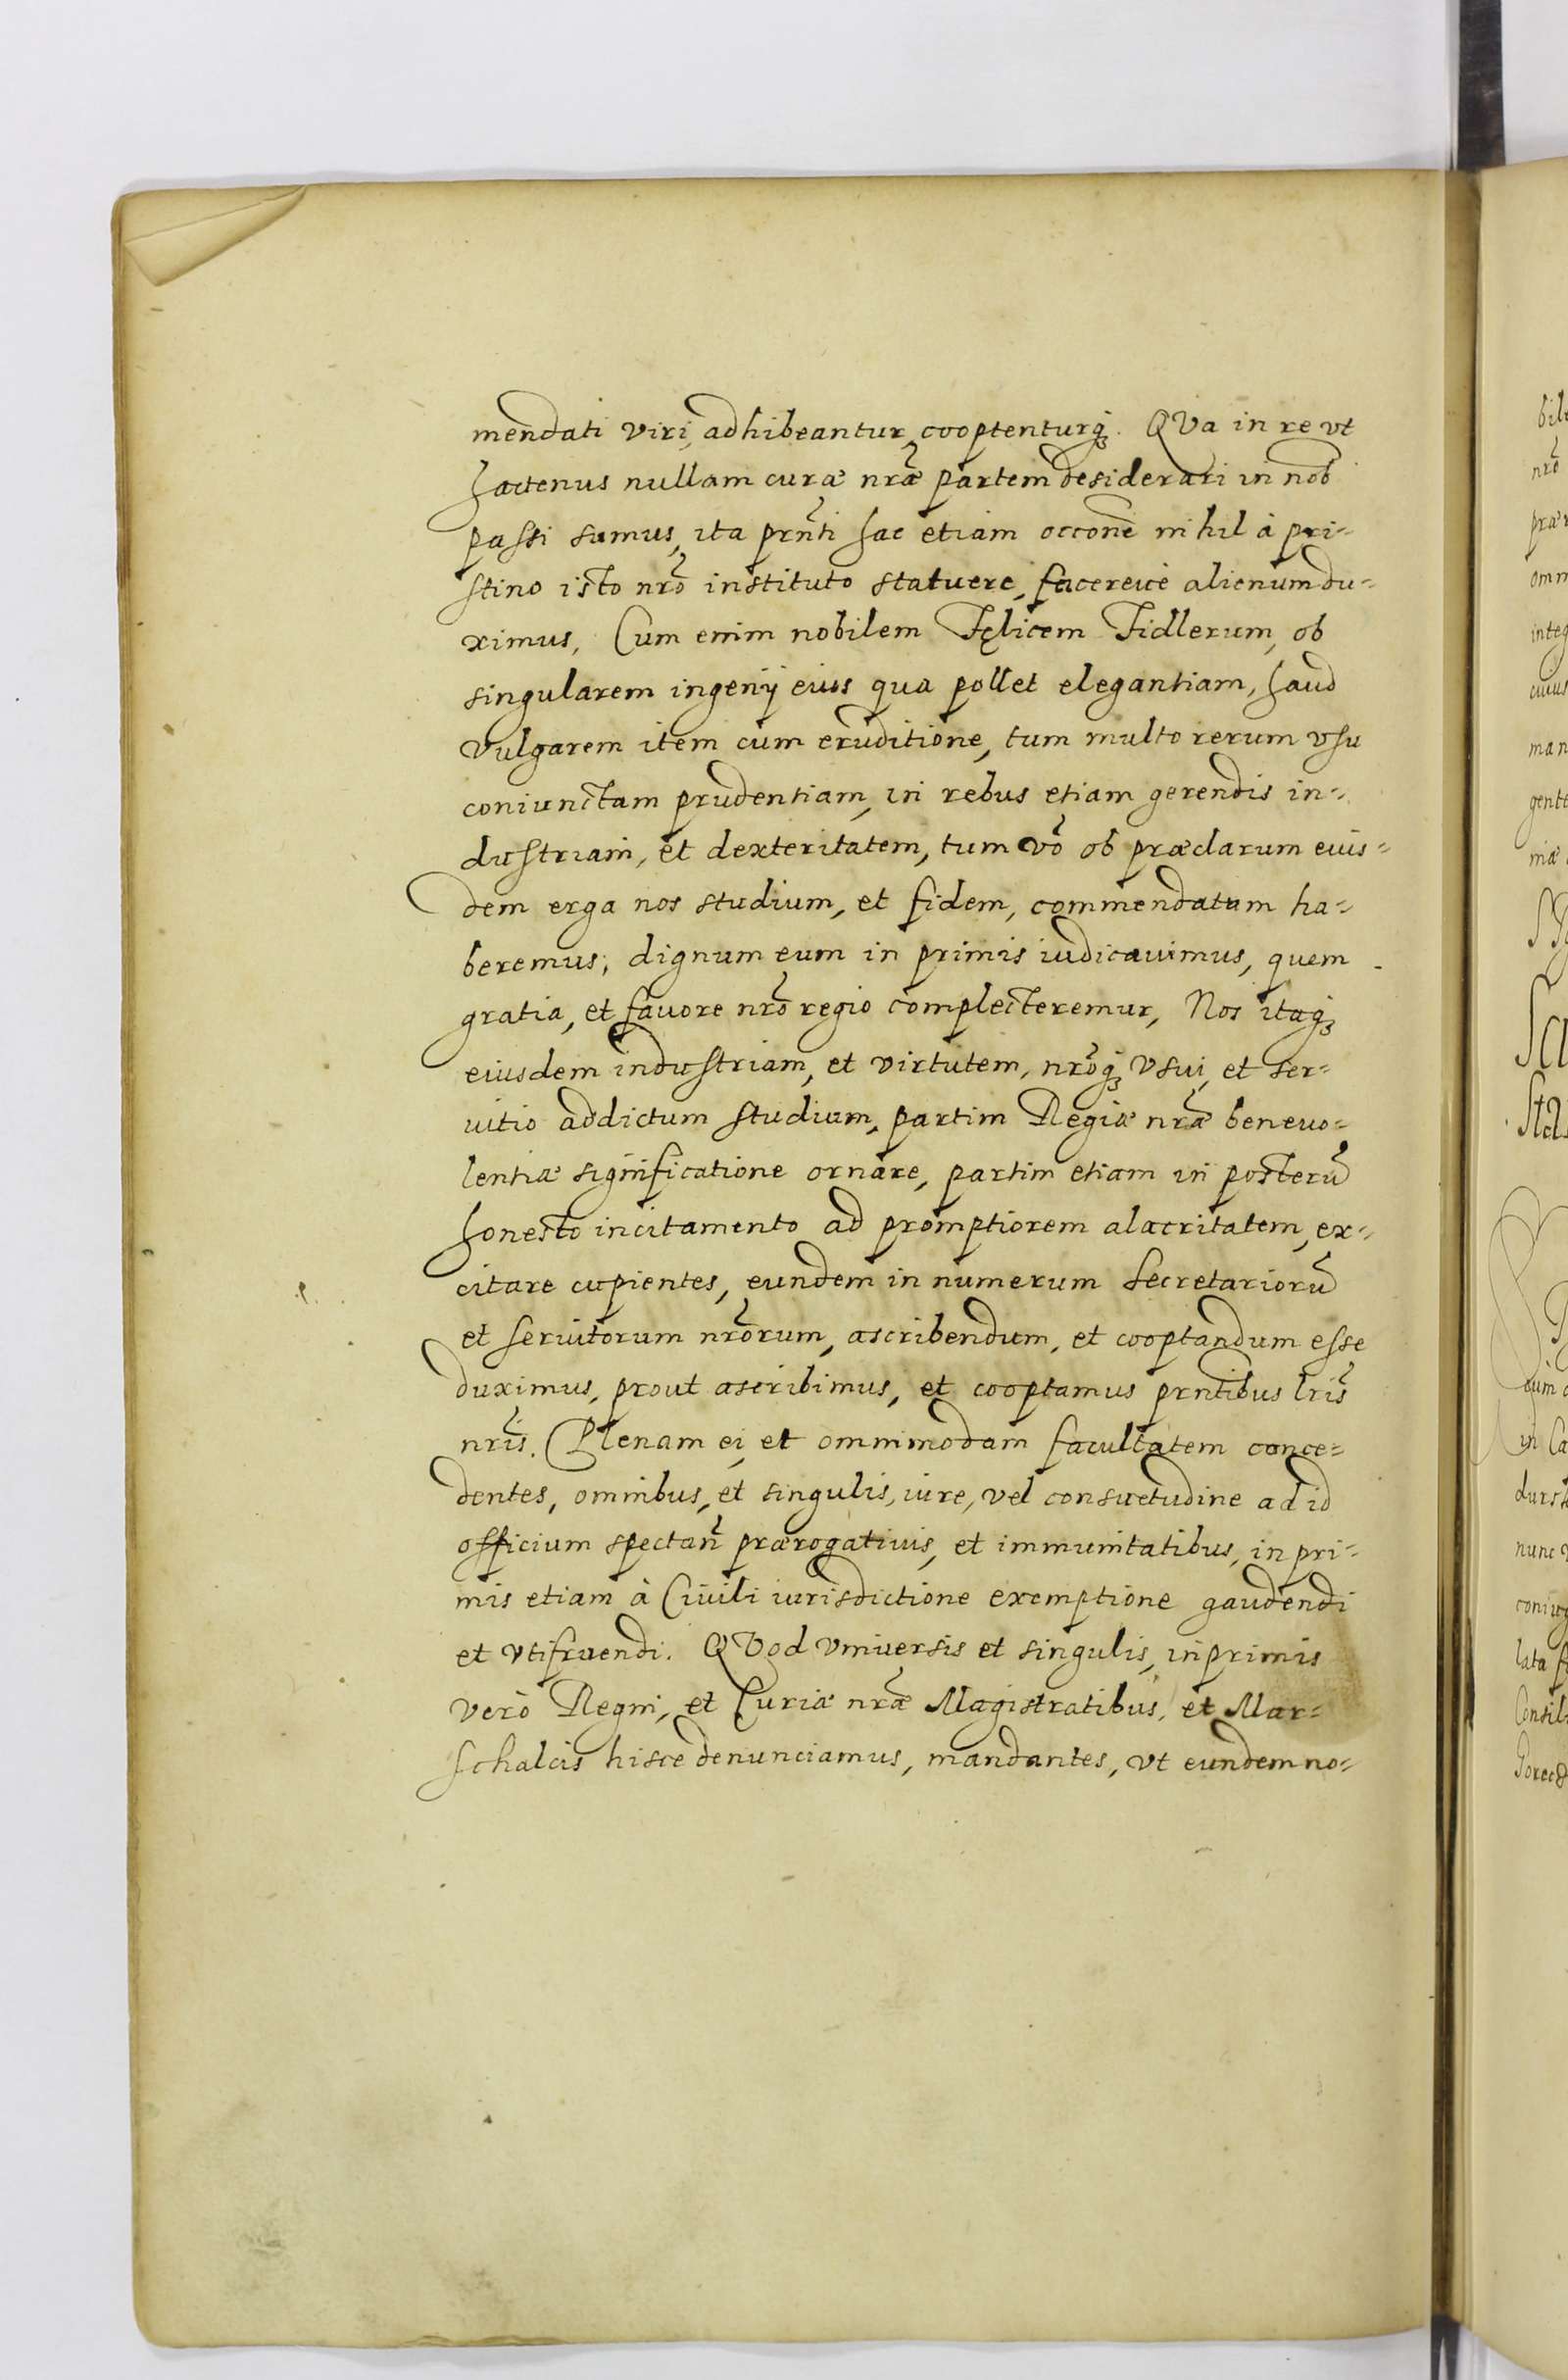 mendati viri, adhibeantur, cooptenturq;. QVa in re vt
hactenus nullam curæ nr̃æ partem desiderari in nob̃
passi sumus, ita prñti hac etiam occone nihil à pri=
stino isto nrõ instituto statuere, facereue alienum du=
ximus. Cum enim nobilem Fęlicem Fidlerum, ob
singularem ingenij eius qua pollet elegantiam, haud
vulgarem item cum eruditione, tum multo rerum vsu
coniunctam prudentiam, in rebus etiam gerendis in=
dustriam, et dexteritatem, tum võ ob præclarum eius=
dem erga nos studium, et fidem, commendatum ha=
beremus; dignum eum in primis iudicauimus, quem
gratia, et fauore nrõ regio complecteremur, Nos itaq;
eiusdem industriam, et virtutem, nrõq; vsui, et ser=
uitio addictum studium, partim Regiæ nr̃æ beneuo=
lentiæ significatione ornare, partim etiam in posterũ
honesto incitamento ad promptiorem alacritatem, ex=
citare cupientes, eundem in numerum Secretariorũ
et seruitorum nrõrum, ascribendum, et cooptandum esse
duximus, prout ascribimus, et cooptamus prñtibus lr̃is
nr̃is. Plenam ei, et omnimodam facultatem conce=
dentes, omnibus, et singulis, iure, vel consuetudine ad id
officium spectañ prærogatiuis, et immunitatibus, in pri=
mis etiam à Ciuili iurisdictione exemptione gaudendi
et vtifruendi. QVod vniuersis et singulis, inprimis
verò Regni, et Curiæ nr̃æ Magistratibus, et Mar=
schalcis hisce denunciamus, mandantes, vt eundem no=